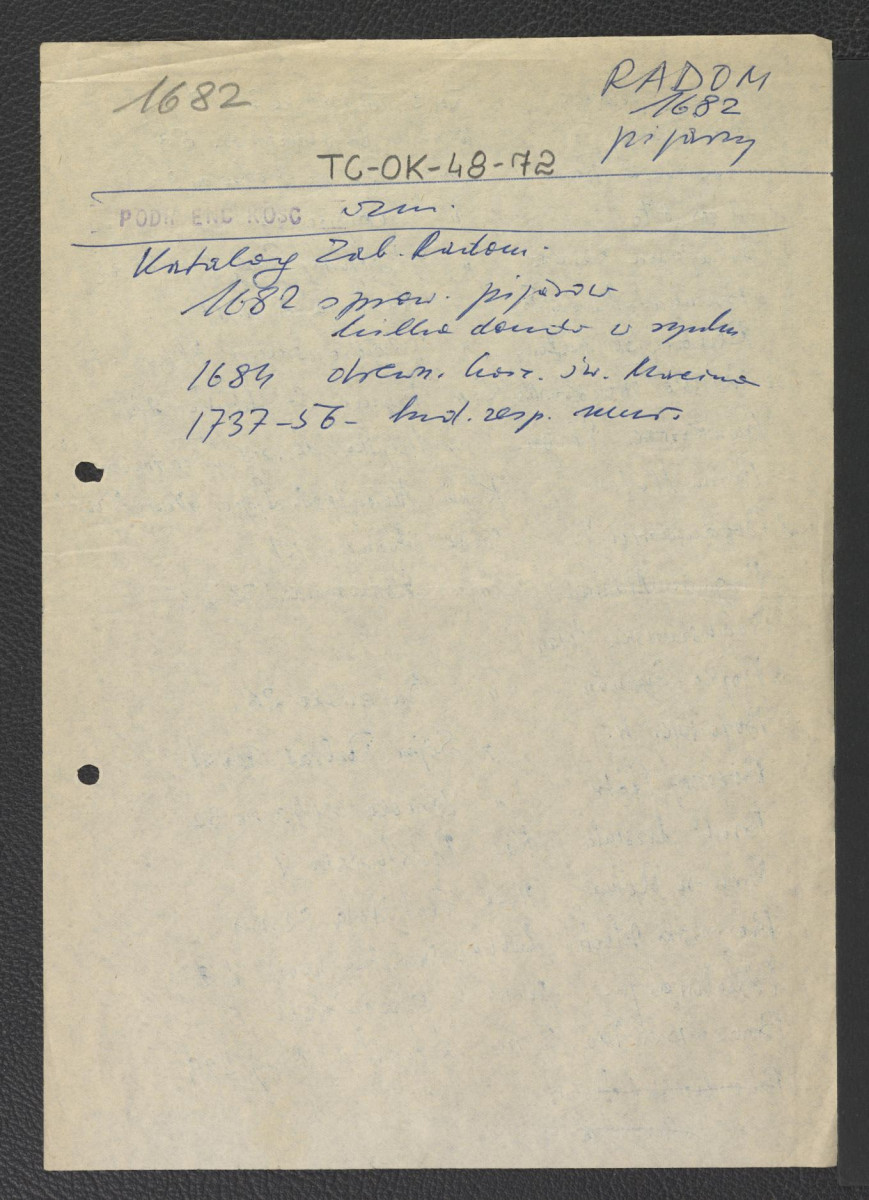 1682
RADOM
1682
pijarzy
TC-OK-48-72
PODR ENC KOSC wzm.
Katalog Zab. Radom.
1682 sprow. pijarów
kilka domów w rynku
1684 drewn. kośc. św.
1737-56- bud. zesp. mur.